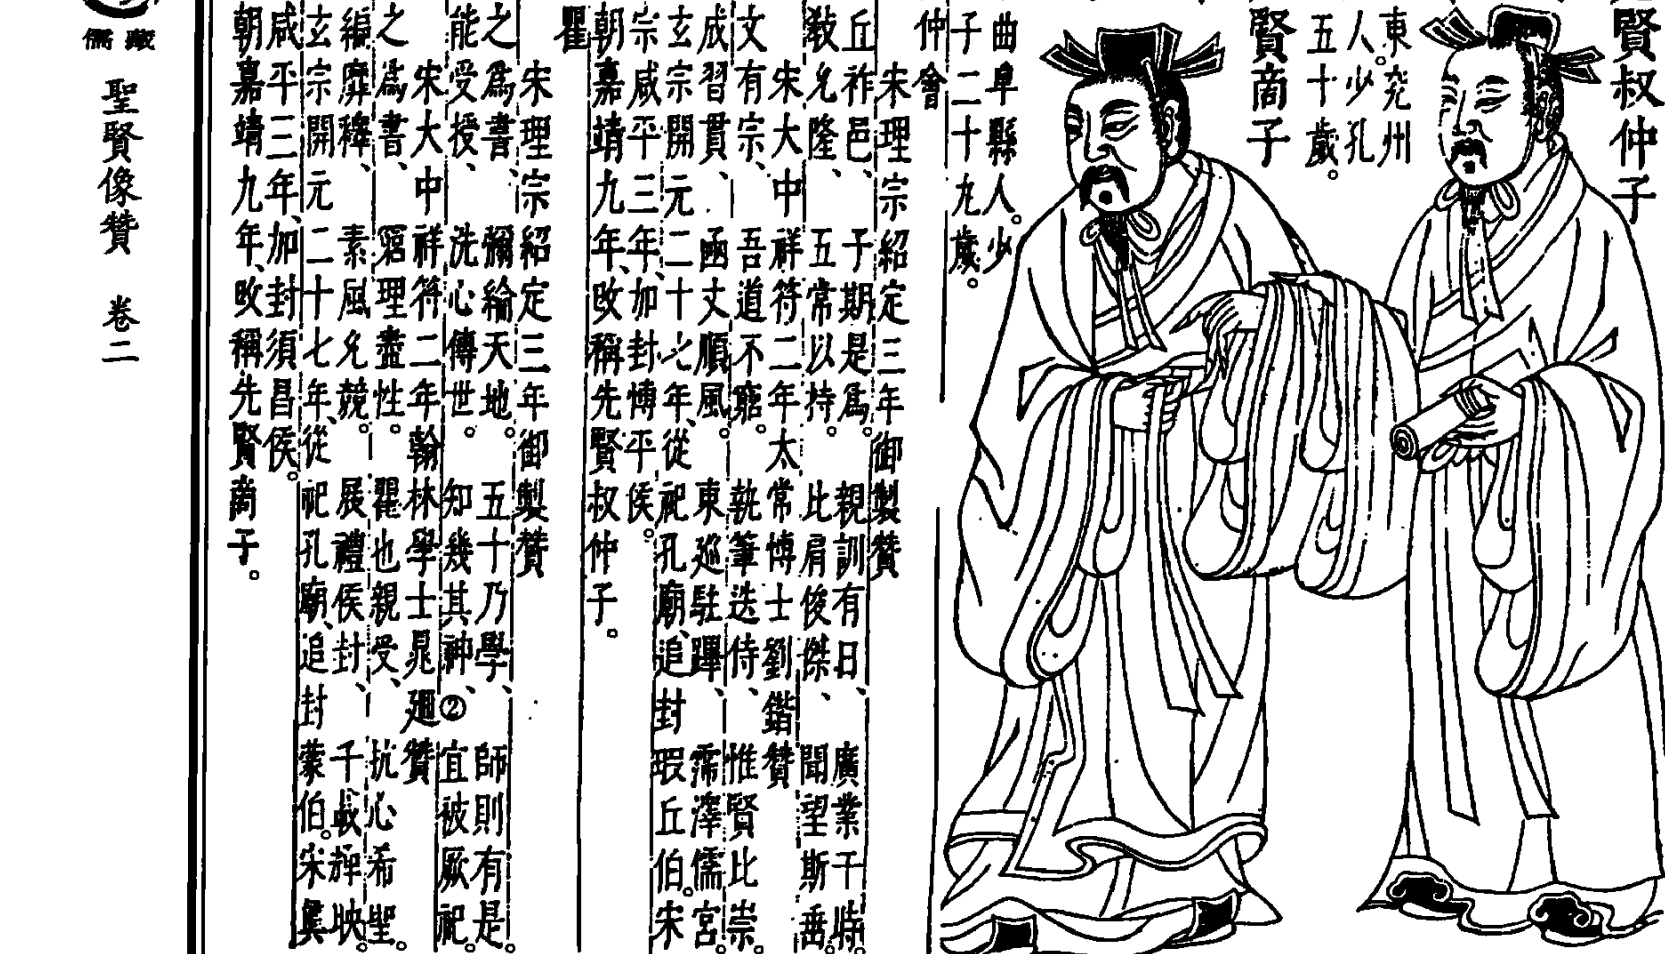 賢叔仲子
東兗州
人。少孔
五十歲。
賢商子
曲阜縣人。少
子二十九歲。
仲會
宋理宗紹定三年御製贊
丘祚邑、子期是為。親訓有日、廣業干時。
教允隆、五常以持。比肩俊傑、聞望斯垂。
宋大中祥符二年太常博士劉鍇贊
文有宗、吾道不窮。執筆迭侍、惟賢比崇。
成習貫、函丈順風。東巡駐蹕、霈澤儒宮。
玄宗開元二十七年、從祀孔廟、追封瑕丘伯。宋
宗咸平三年、加封博平侯。
朝嘉靖九年、改稱先賢叔仲子。
瞿
宋理宗紹定三年御製贊
之為書、彌綸天地。五十乃學、師則有是。
能受授、洗心傳世。知幾其神、②宜被厥祀。
宋大中祥符二年翰林學士晁迥贊
之為書、窮理盡性。瞿也親受、抗心希聖。
編靡釋、素風允競。展禮侯封、千載輝映。
玄宗開元二十七年、從祀孔廟、追封蒙伯。宋真
咸平三年、加封須昌侯。
朝嘉靖九年、改稱先賢商子。
儒藏
聖賢像贊 卷二